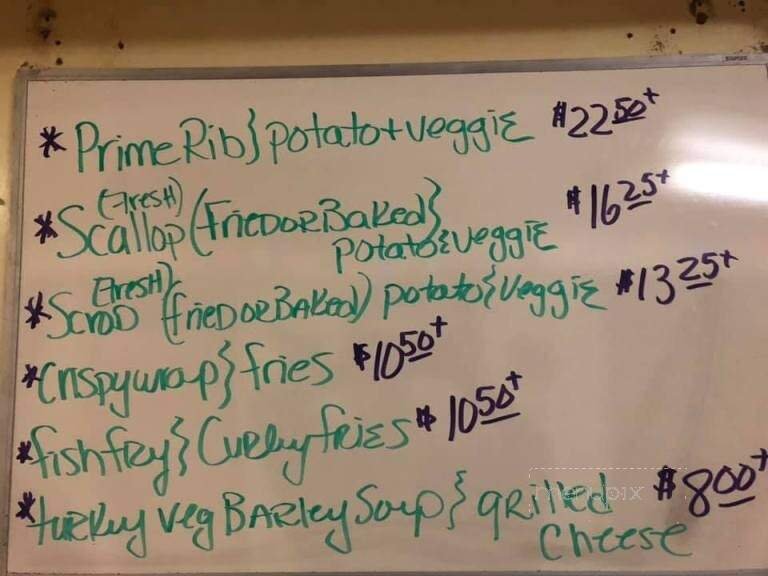 * Prime Rib} potato + veggie $22 50+
(Fresh)
* Scallop (Fried or Baked} $16 25+
potato & veggie
(Fresh)
* Scrod (fried or BAKed) potato & veggie $13 25+
* Crispy wrap} fries $10 50+
* fish fry} Curly fries $10 50+
* turkey veg BARley Soup} grilled $8 00+
cheese
menupix
STAPLES